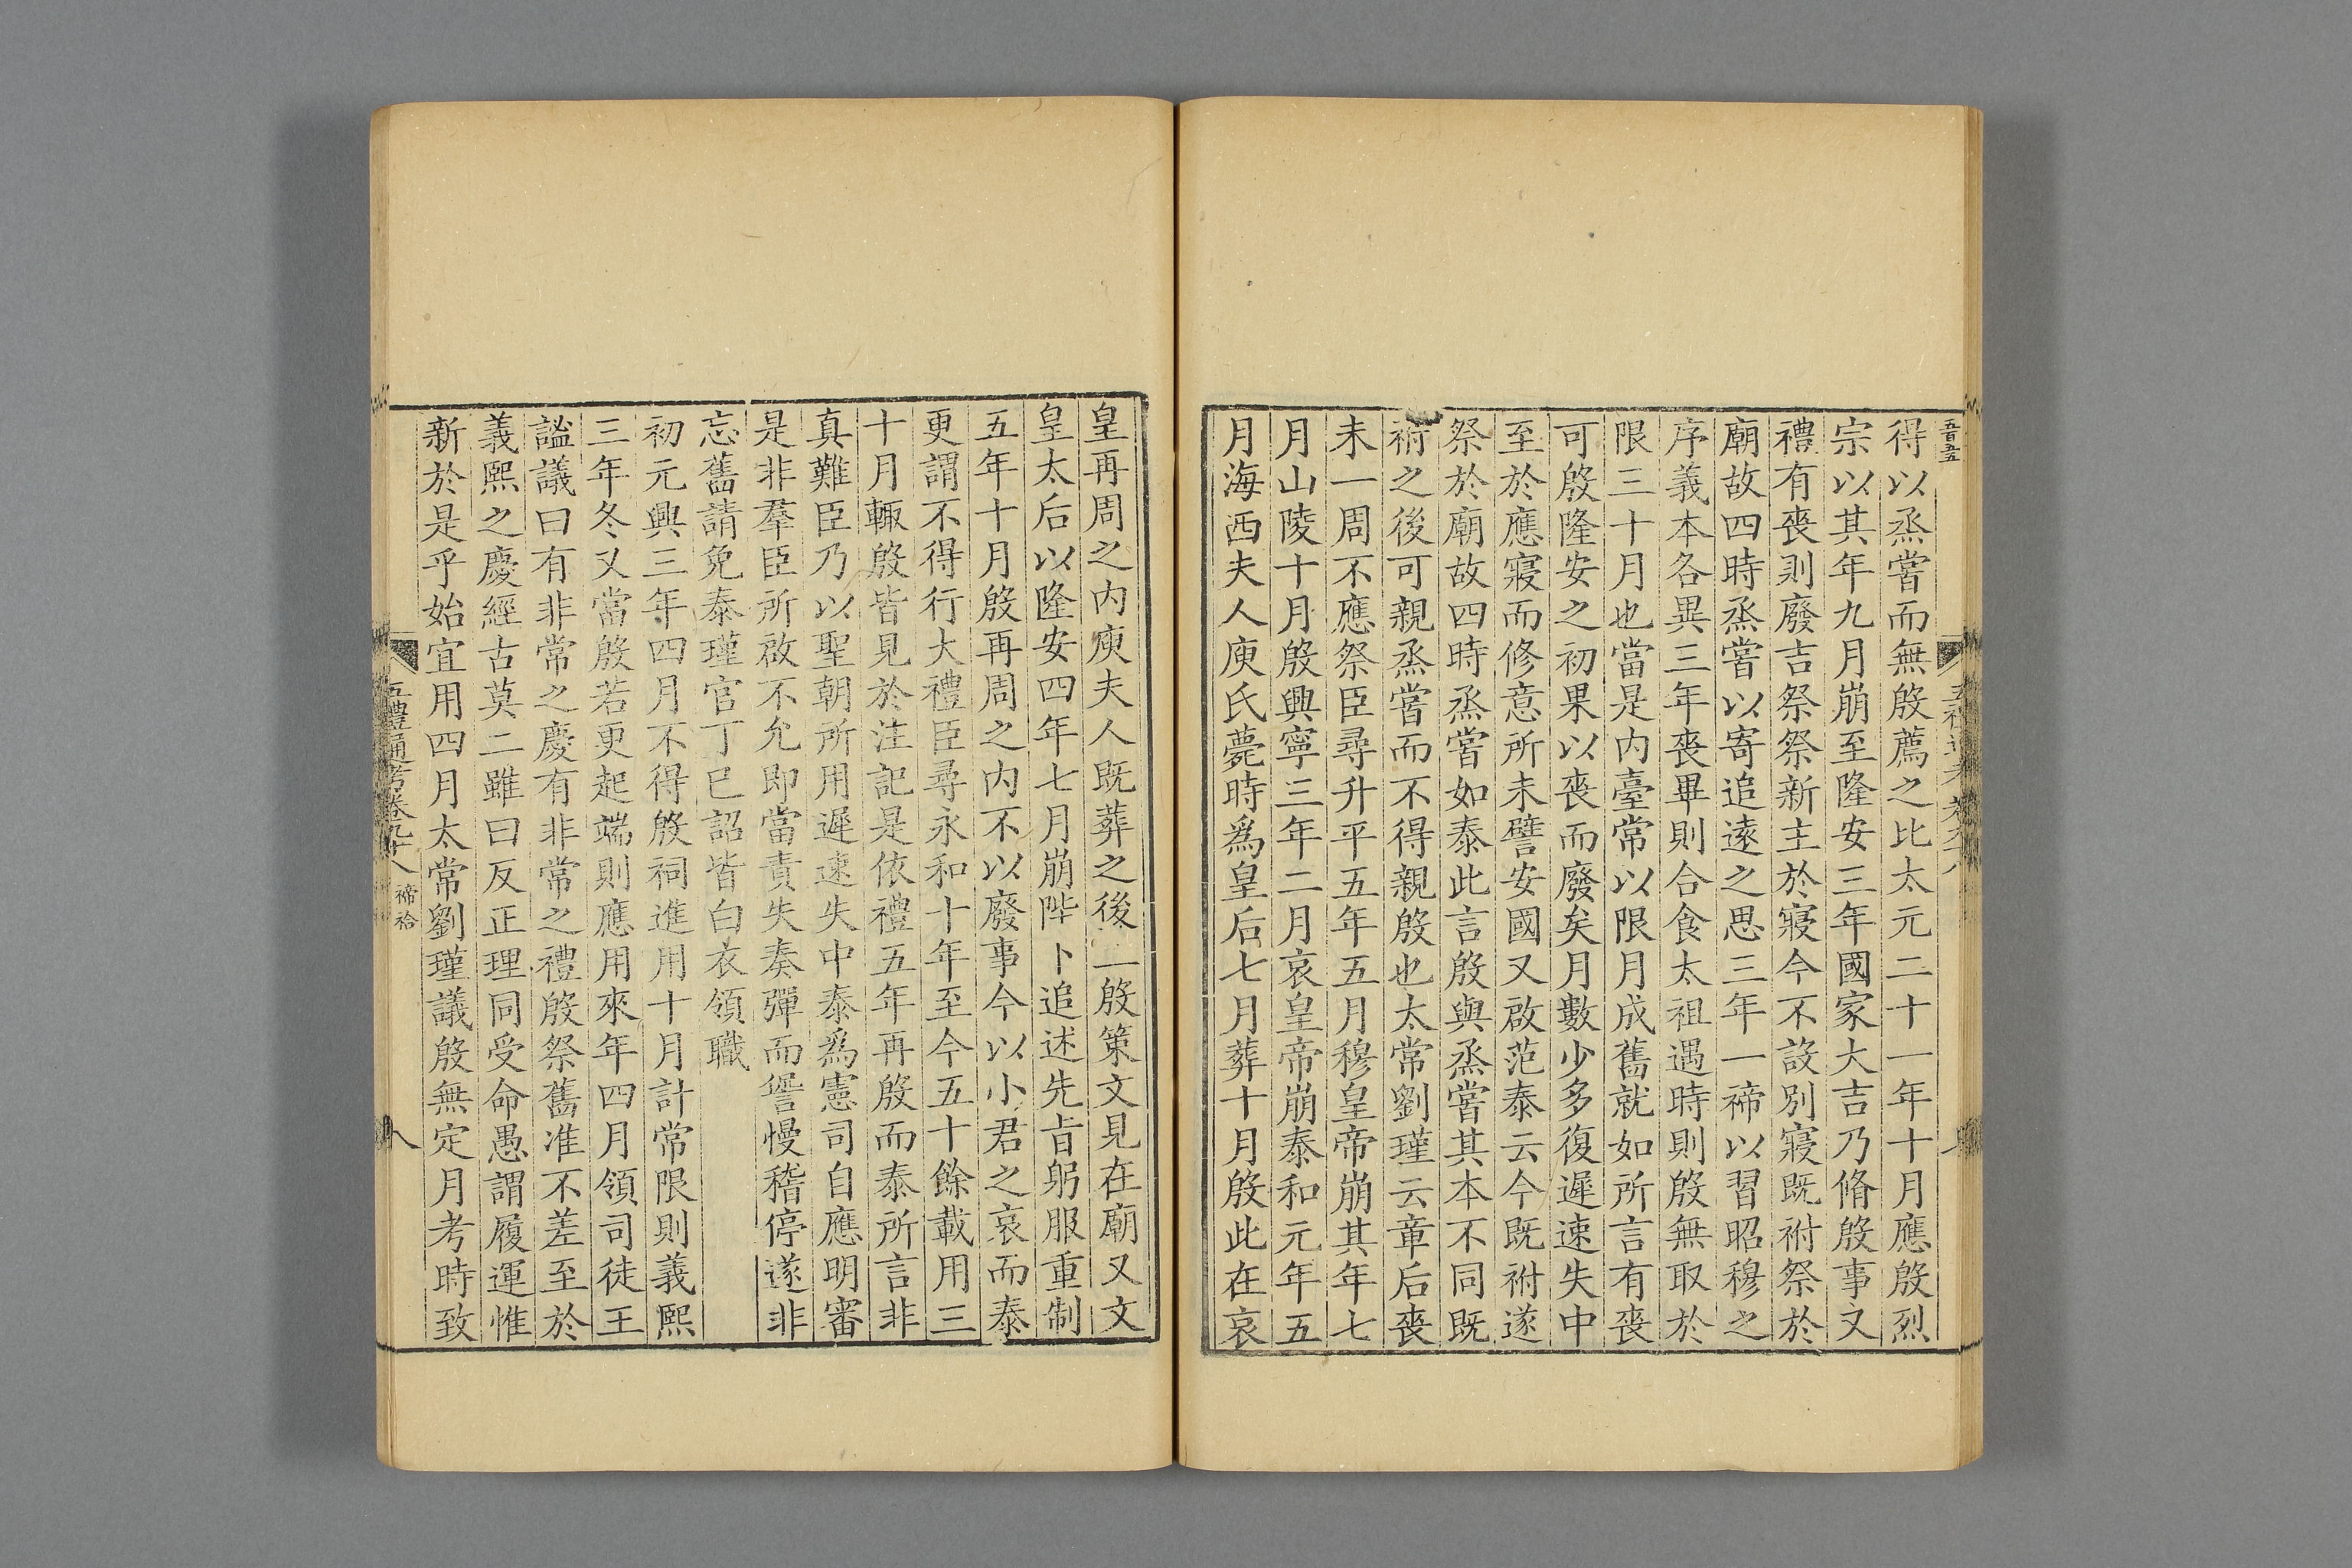 得以烝嘗而無殷薦之比太元二十一年十月應殷烈
宗以其年九月崩至隆安三年國家大吉乃脩殷事又
禮有喪則廢吉祭祭新主於寢今不設別寢既祔祭於
廟故四時烝嘗以寄追遠之思三年一禘以習昭穆之
序義本各異三年喪畢則合食太祖遇時則殷無取於
限三十月也當是內臺常以限月成舊就如所言有喪
可殷隆安之初果以喪而廢矣月數少多復遲速失中
至於應寢而修意所未譬安國又啟范泰云今既祔遂
祭於廟故四時烝嘗如泰此言殷與烝嘗其本不同既
祔之後可親烝嘗而不得親殷也太常劉瑾云章后喪
未一周不應祭臣尋升平五年五月穆皇帝崩其年七
月山陵十月殷興寧三年二月哀皇帝崩泰和元年五
月海西夫人庾氏薨時為皇后七月葬十月殷此在哀
皇再周之內庾夫人既葬之後二殷策文見在廟又文
皇太后以隆安四年七月崩陛下追述先旨躬服重制
五年十月殷再周之內不以廢事今以小君之哀而泰
更謂不得行大禮臣尋永和十年至今五十餘載用三
十月輙殷皆見於注記是依禮五年再殷而泰所言非
真難臣乃以聖朝所用遲速失中泰為憲司自應明審
是非羣臣所啟不允即當責失奏彈而諐慢稽停遂非
忘舊請免泰瑾官丁巳詔皆白衣領職
初元興三年四月不得殷祠進用十月計常限則義熙
三年冬又當殷若更起端則應用來年四月領司徒王
謐議曰有非常之慶有非常之禮殷祭舊准不差至於
義熙之慶經古莫二雖曰反正理同受命愚謂履運惟
新於是乎始宜用四月太常劉瑾議殷無定月考時致
五禮通考卷九十八 禘祫
八